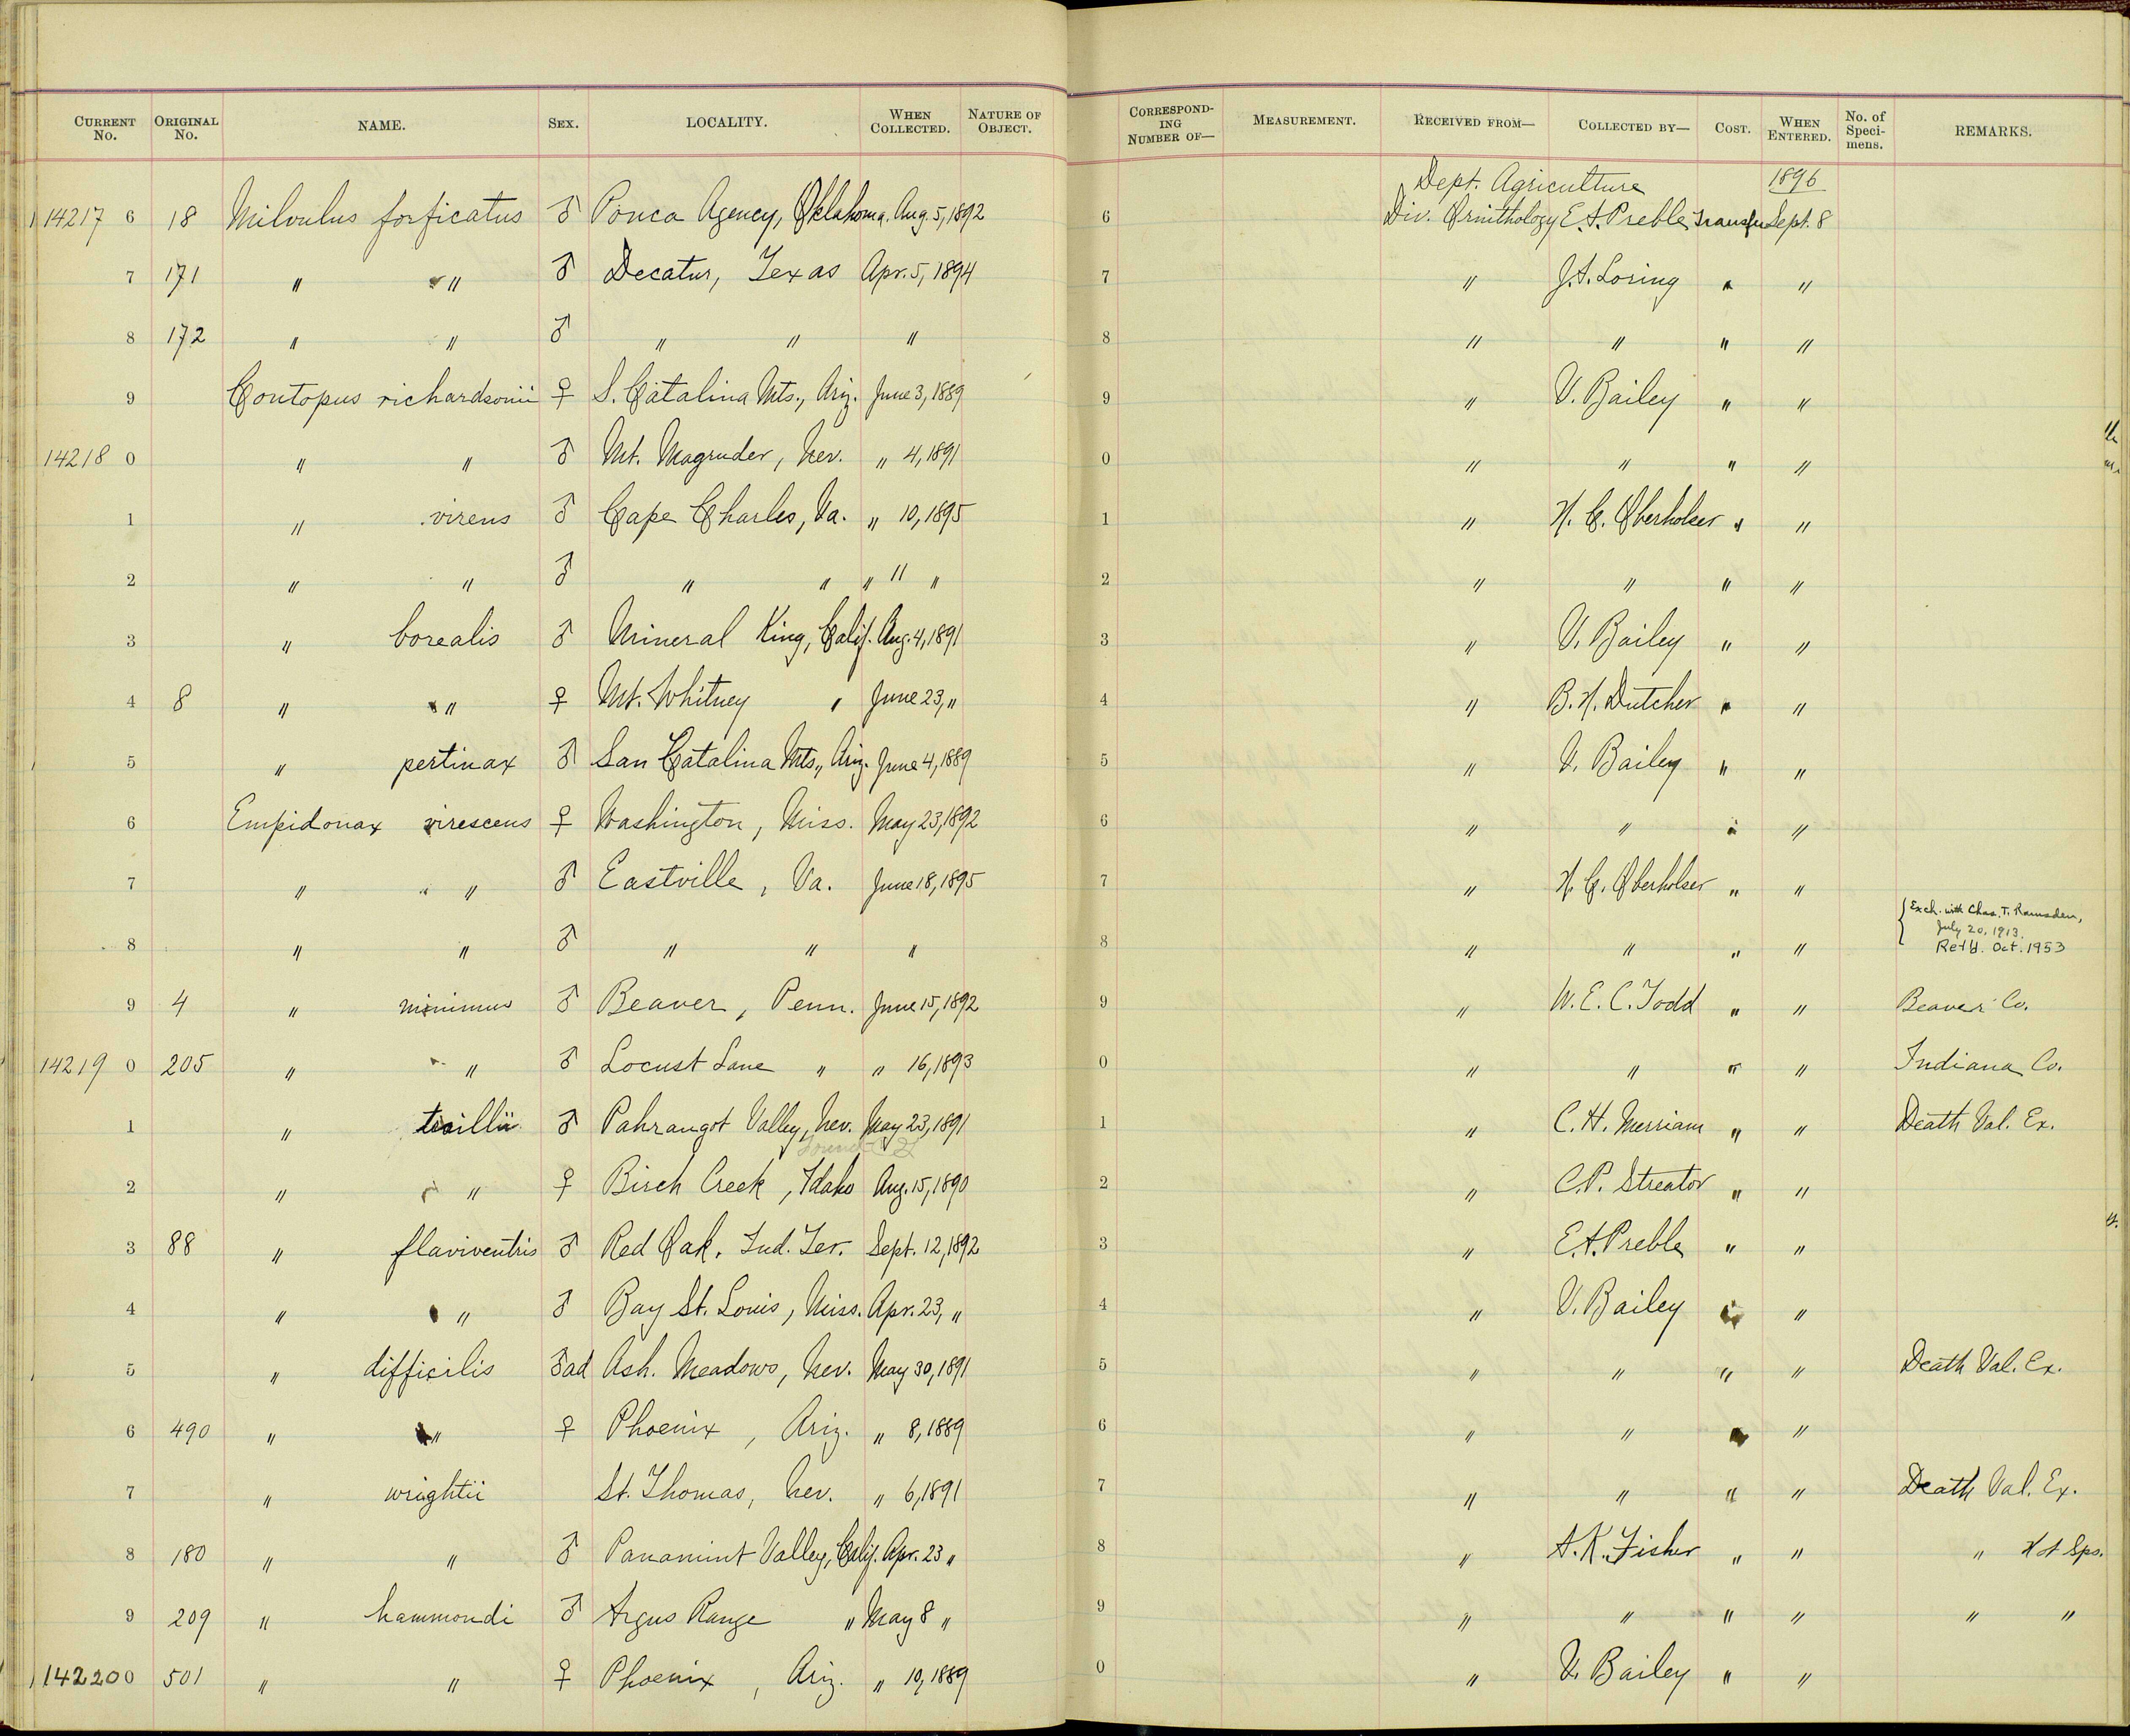 CURRENT No. ORIGINAL No. NAME. SEX. LOCALITY. WHEN COLLECTED. NATURE OF OBJECT. CORRESPONDING NUMBER OF— MEASUREMENT. RECEIVED FROM— COLLECTED BY— COST. WHEN ENTERED. No. of Specimens. REMARKS.
Dept. Agriculture 1896
14217 6 18 Milvulus forficatus ♂ Ponca Agency, Oklahoma. Aug. 5, 1892 6 Div. Ornithology E.A. Preble Transfer Sept. 8
7 171 " " ♂ Decatur, Texas Apr. 5, 1894 7 " J.A. Loring " "
8 172 " " ♂ " " " 8 " " " "
9 Contopus richardsonii ♀ S. Catalina Mts., Ariz. June 3, 1889 9 " V. Bailey " "
14218 0 " " ♂ Mt. Magruder, Nev. " 4, 1891 0 " " " "
1 " virens ♂ Cape Charles, Va. " 10, 1895 1 " H. C. Oberholser " "
2 " " ♂ " " " 11 " 2 " " " "
3 " borealis ♂ Mineral King, Calif. Aug. 4, 1891 3 " V. Bailey " "
4 8 " " ♀ Mt. Whitney " June 23, " 4 " B. H. Dutcher " "
5 " pertinax ♂ San Catalina Mts., Ariz. June 4, 1889 5 " V. Bailey " "
6 Empidonax virescens ♀ Washington, Miss. May 23, 1892 6 " " " "
7 " " ♂ Eastville, Va. June 18, 1895 7 " H. C. Oberholser " "
8 " " ♂ " " " 8 " " " " Exch. with Chas. T. Ramsden,
July 20, 1913.
Ret'd. Oct. 1953
9 4 " minimus ♂ Beaver, Penn. June 15, 1892 9 " W. E. C. Todd " " Beaver Co.
14219 0 205 " " ♂ Locust Lane " " 16, 1893 0 " " " " Indiana Co.
1 " traillii ♂ Pahrangot Valley, Nev. May 23, 1891 1 " C. H. Merriam " " Death Val. Ex.
2 " " ♀ Birch Creek, Idaho Aug. 15, 1890 2 " C. P. Streator " "
3 88 " flaviventris ♂ Red Oak. Ind. Ter. Sept. 12, 1892 3 " E. A. Preble " "
4 " " ♂ Bay St. Louis, Miss. Apr. 23, " 4 " V. Bailey " "
5 " difficilis ♂ad Ash. Meadows, Nev. May 30, 1891 5 " " " " Death Val. Ex.
6 490 " " ♀ Phoenix, Ariz. " 8, 1889 6 " " "
7 " wrightii St. Thomas, Nev. " 6, 1891 7 " " " " Death Val. Ex.
8 180 " " ♂ Panamint Valley, Calif. Apr. 23 " 8 " A. K. Fisher " " " Hot Sps.
9 209 " hammondi ♂ Argus Range " May 8 " 9 " " " " " "
142200 501 " " ♀ Phoenix, Ariz. " 10, 1889 0 " V. Bailey " "